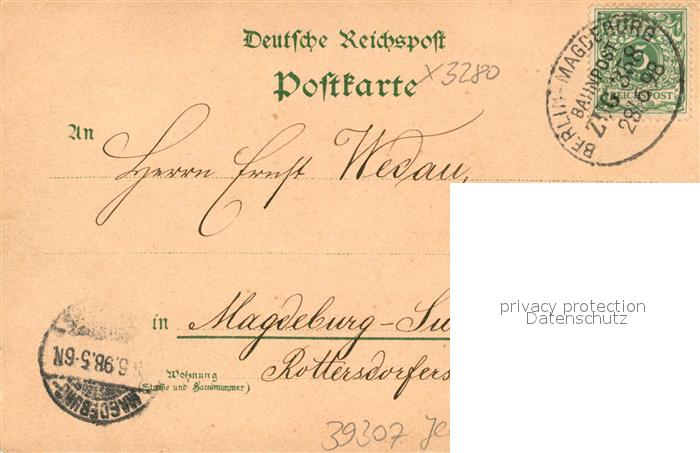 Deutsche Reichspost
Postkarte
X3280
5
REICHSPOST
BERLIN-MAGDEBURG
BAHNPOST
ZUG 388
28.5.98
An
Herrn Ernst Wesau,
privacy protection
Datenschutz
in Magdeburg-Su
Wohnung
(Straße und Hausnummer)
Rottersdorfers
.6.98.5-6N.
MAGDEBURG-
39307 Je